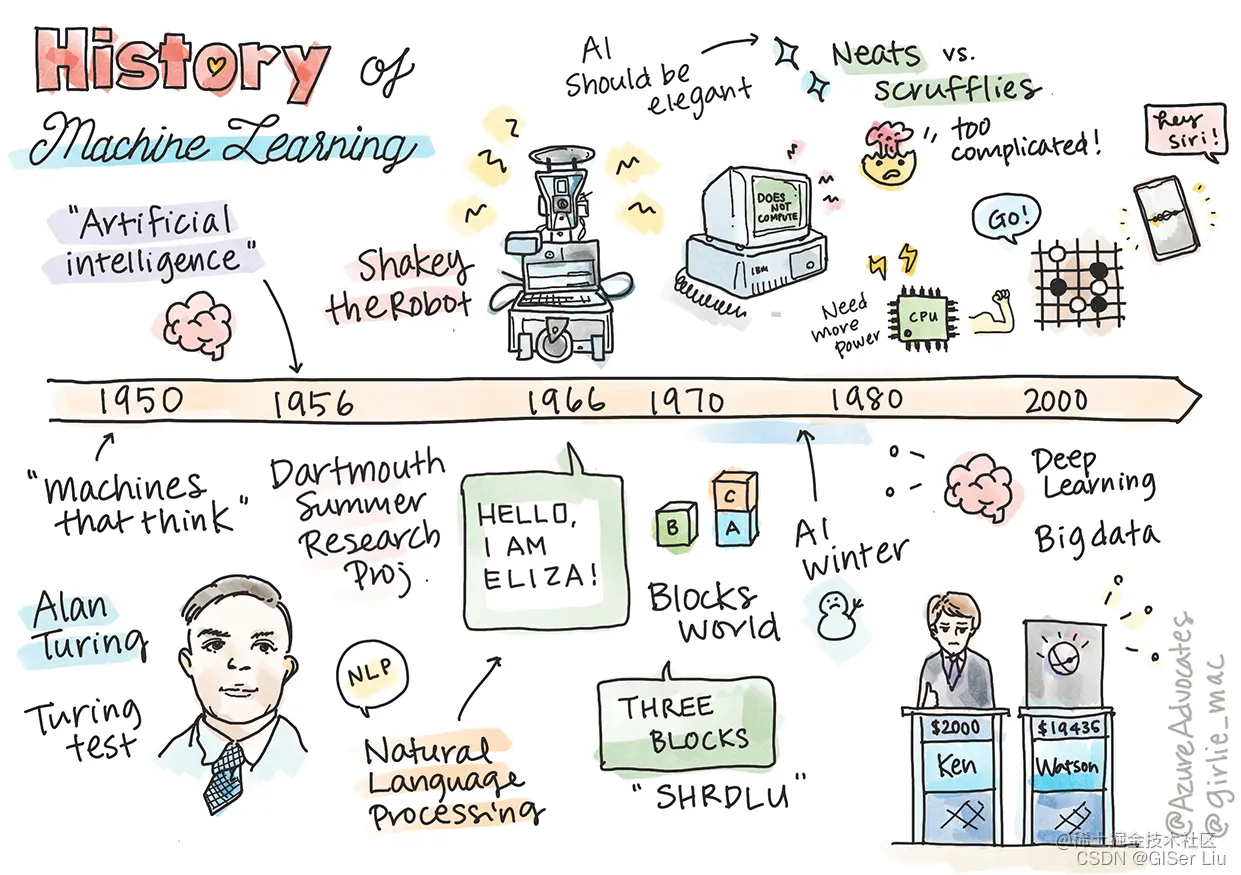 History of
Machine Learning
"Artificial
intelligence"
Shakey
the Robot
AI
Should be
elegant
Neats vs.
scrufflies
too
complicated!
hey
siri!
DOES
NOT
COMPUTE
IBM
GO!
Need
more
Power
CPU
1950
1956
1966
1970
1980
2000
"machines
that think"
Alan
Turing
Turing
test
Dartmouth
Summer
Research
Proj.
NLP
Natural
Language
Processing
HELLO,
I AM
ELIZA!
B
C
A
Blocks
world
THREE
BLOCKS
"SHRDLU"
AI
winter
Deep
Learning
Big data
$2000
Ken
$19435
Watson
@AzureAdvocates
@girlie_mac
@稀土掘金技术社区
CSDN @GISer Liu